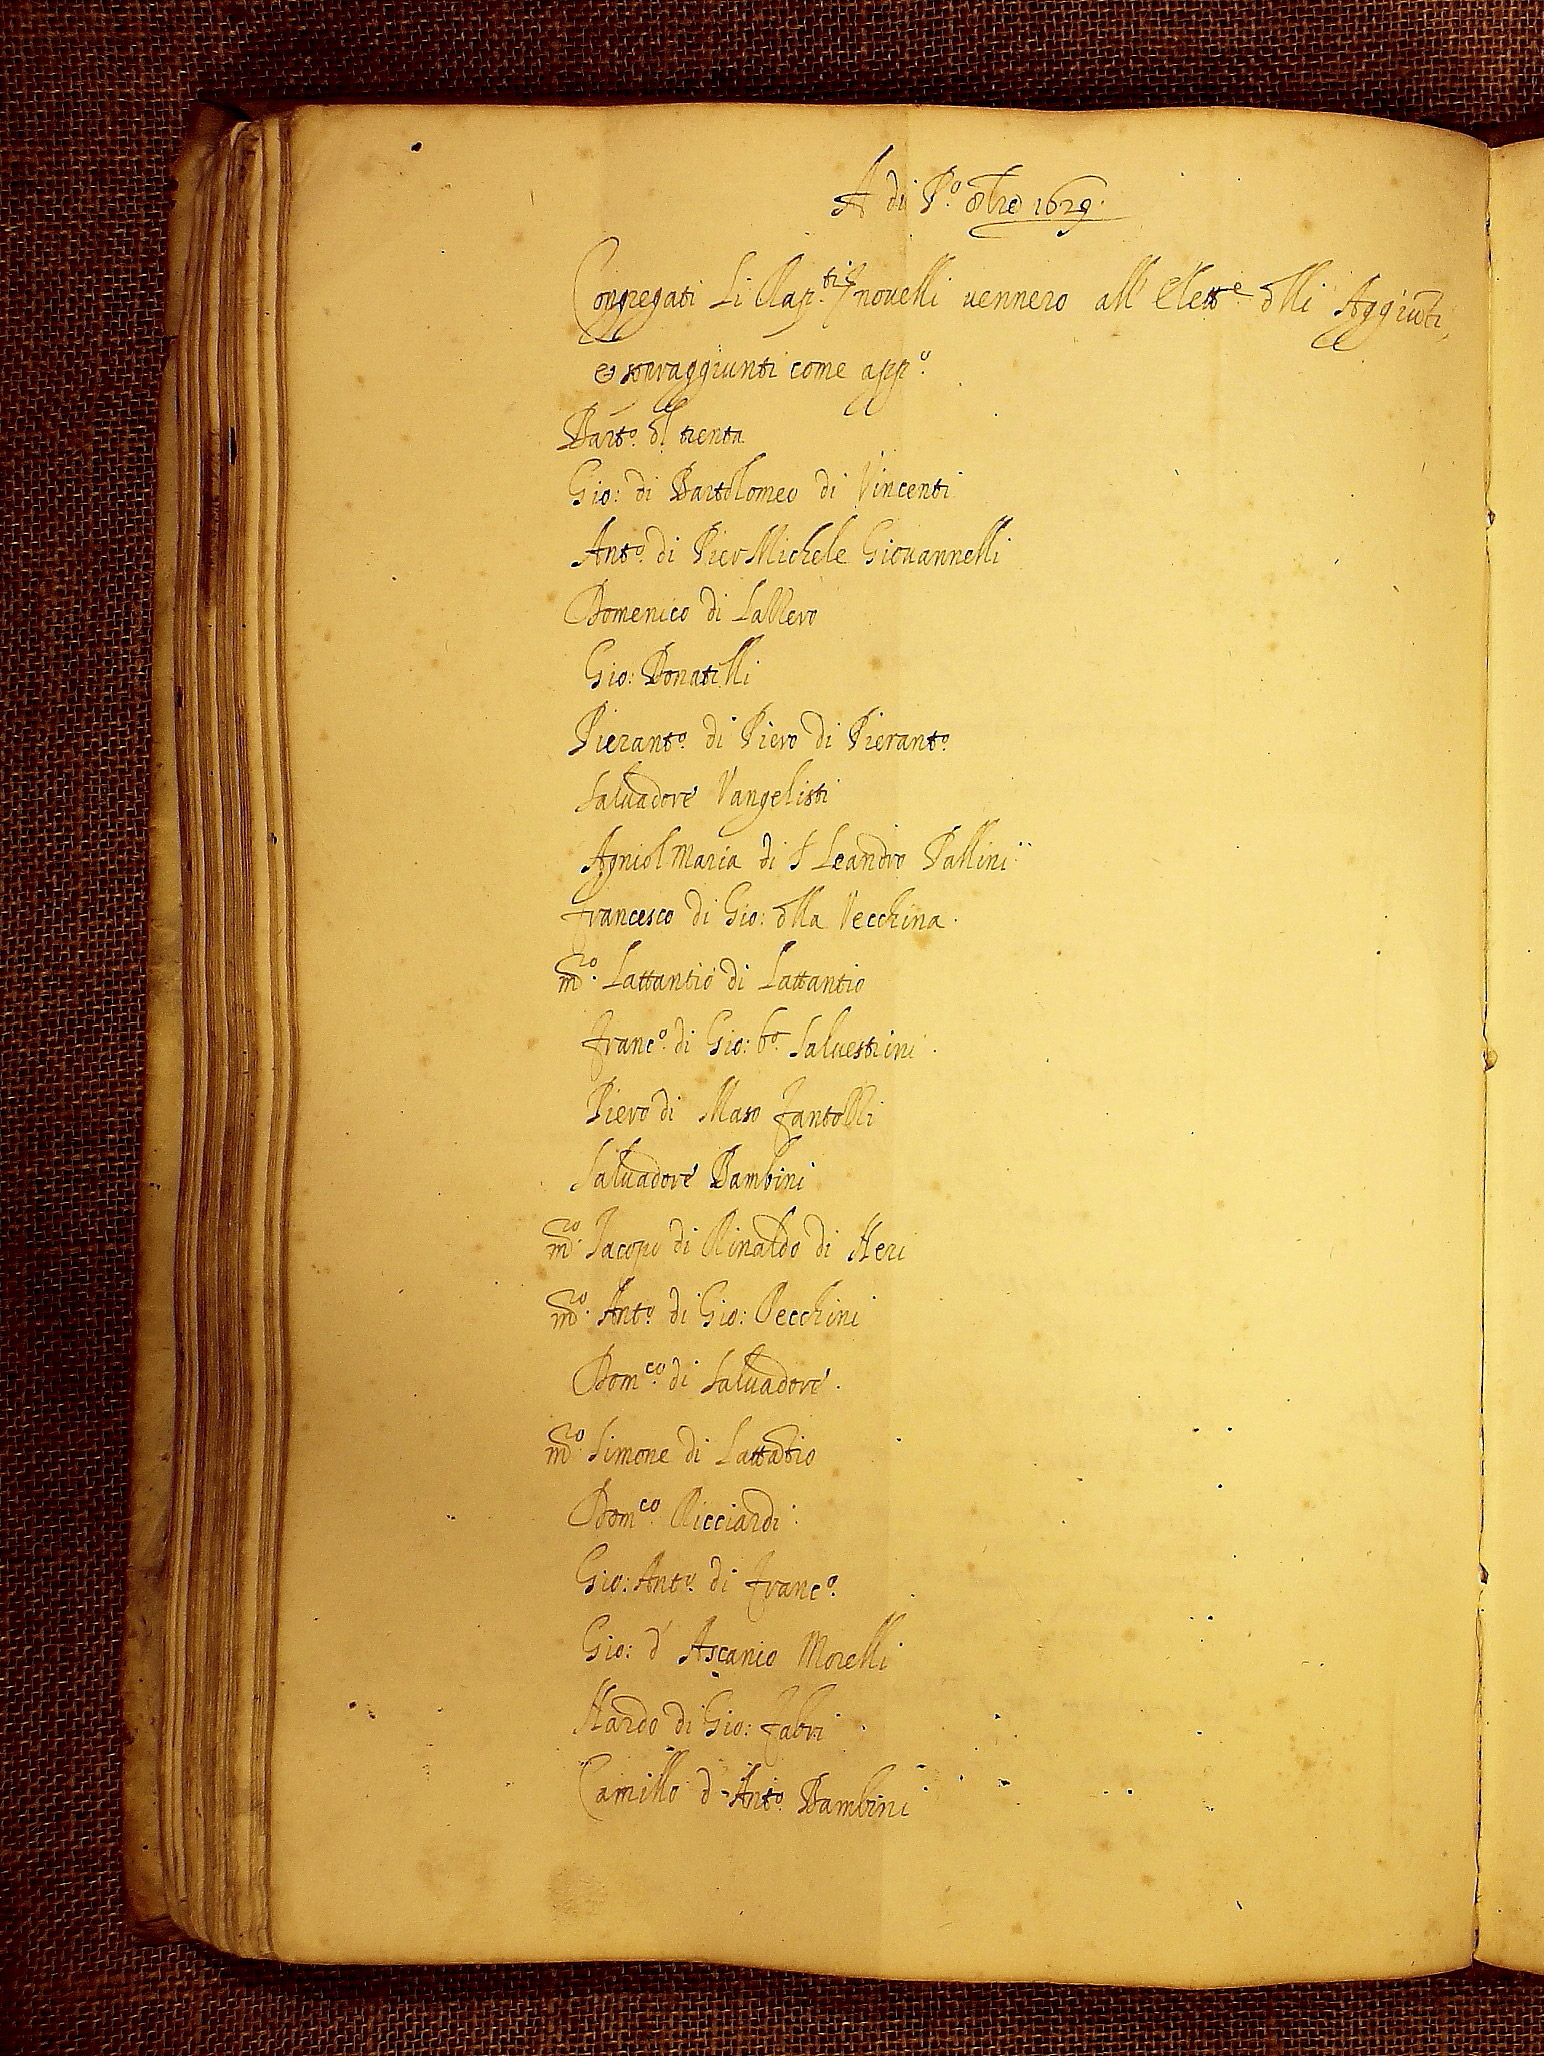 A di P.o 8bre 1629.
Congregati Li Rap.ti novelli vennero all' Elett.e dlli Aggiūti,
& sopraggiunti come app.o
Bart.o dl trenta
Gio: di Bartolomeo di Vincenti
Ant.o di Pier Michele Giovannelli
Domenico di
Gio: Donatelli
Pierant.o di Piero di Pierant.o
Salvadore Vangelisti
Agniol Maria di S Leandro Pallini
Francesco di Gio: dlla Vecchina.
m.ro Lattantio di Lattantio
Franc.o di Gio: b.o Salvestrini.
Piero di Maso
Salvadore Bambini
m.ro Jacopo di Rinaldo di Neri
m.ro Ant.o di Gio: Pecchini
Dom.co di Salvadore.
m.ro Simone di Lattātio
Dom.co Ricciardi.
Gio: Ant.o di Franc.o
Gio: d' Ascanio Morelli
Nardo di Gio: Fabri
Camillo d' Ant.o Bambini